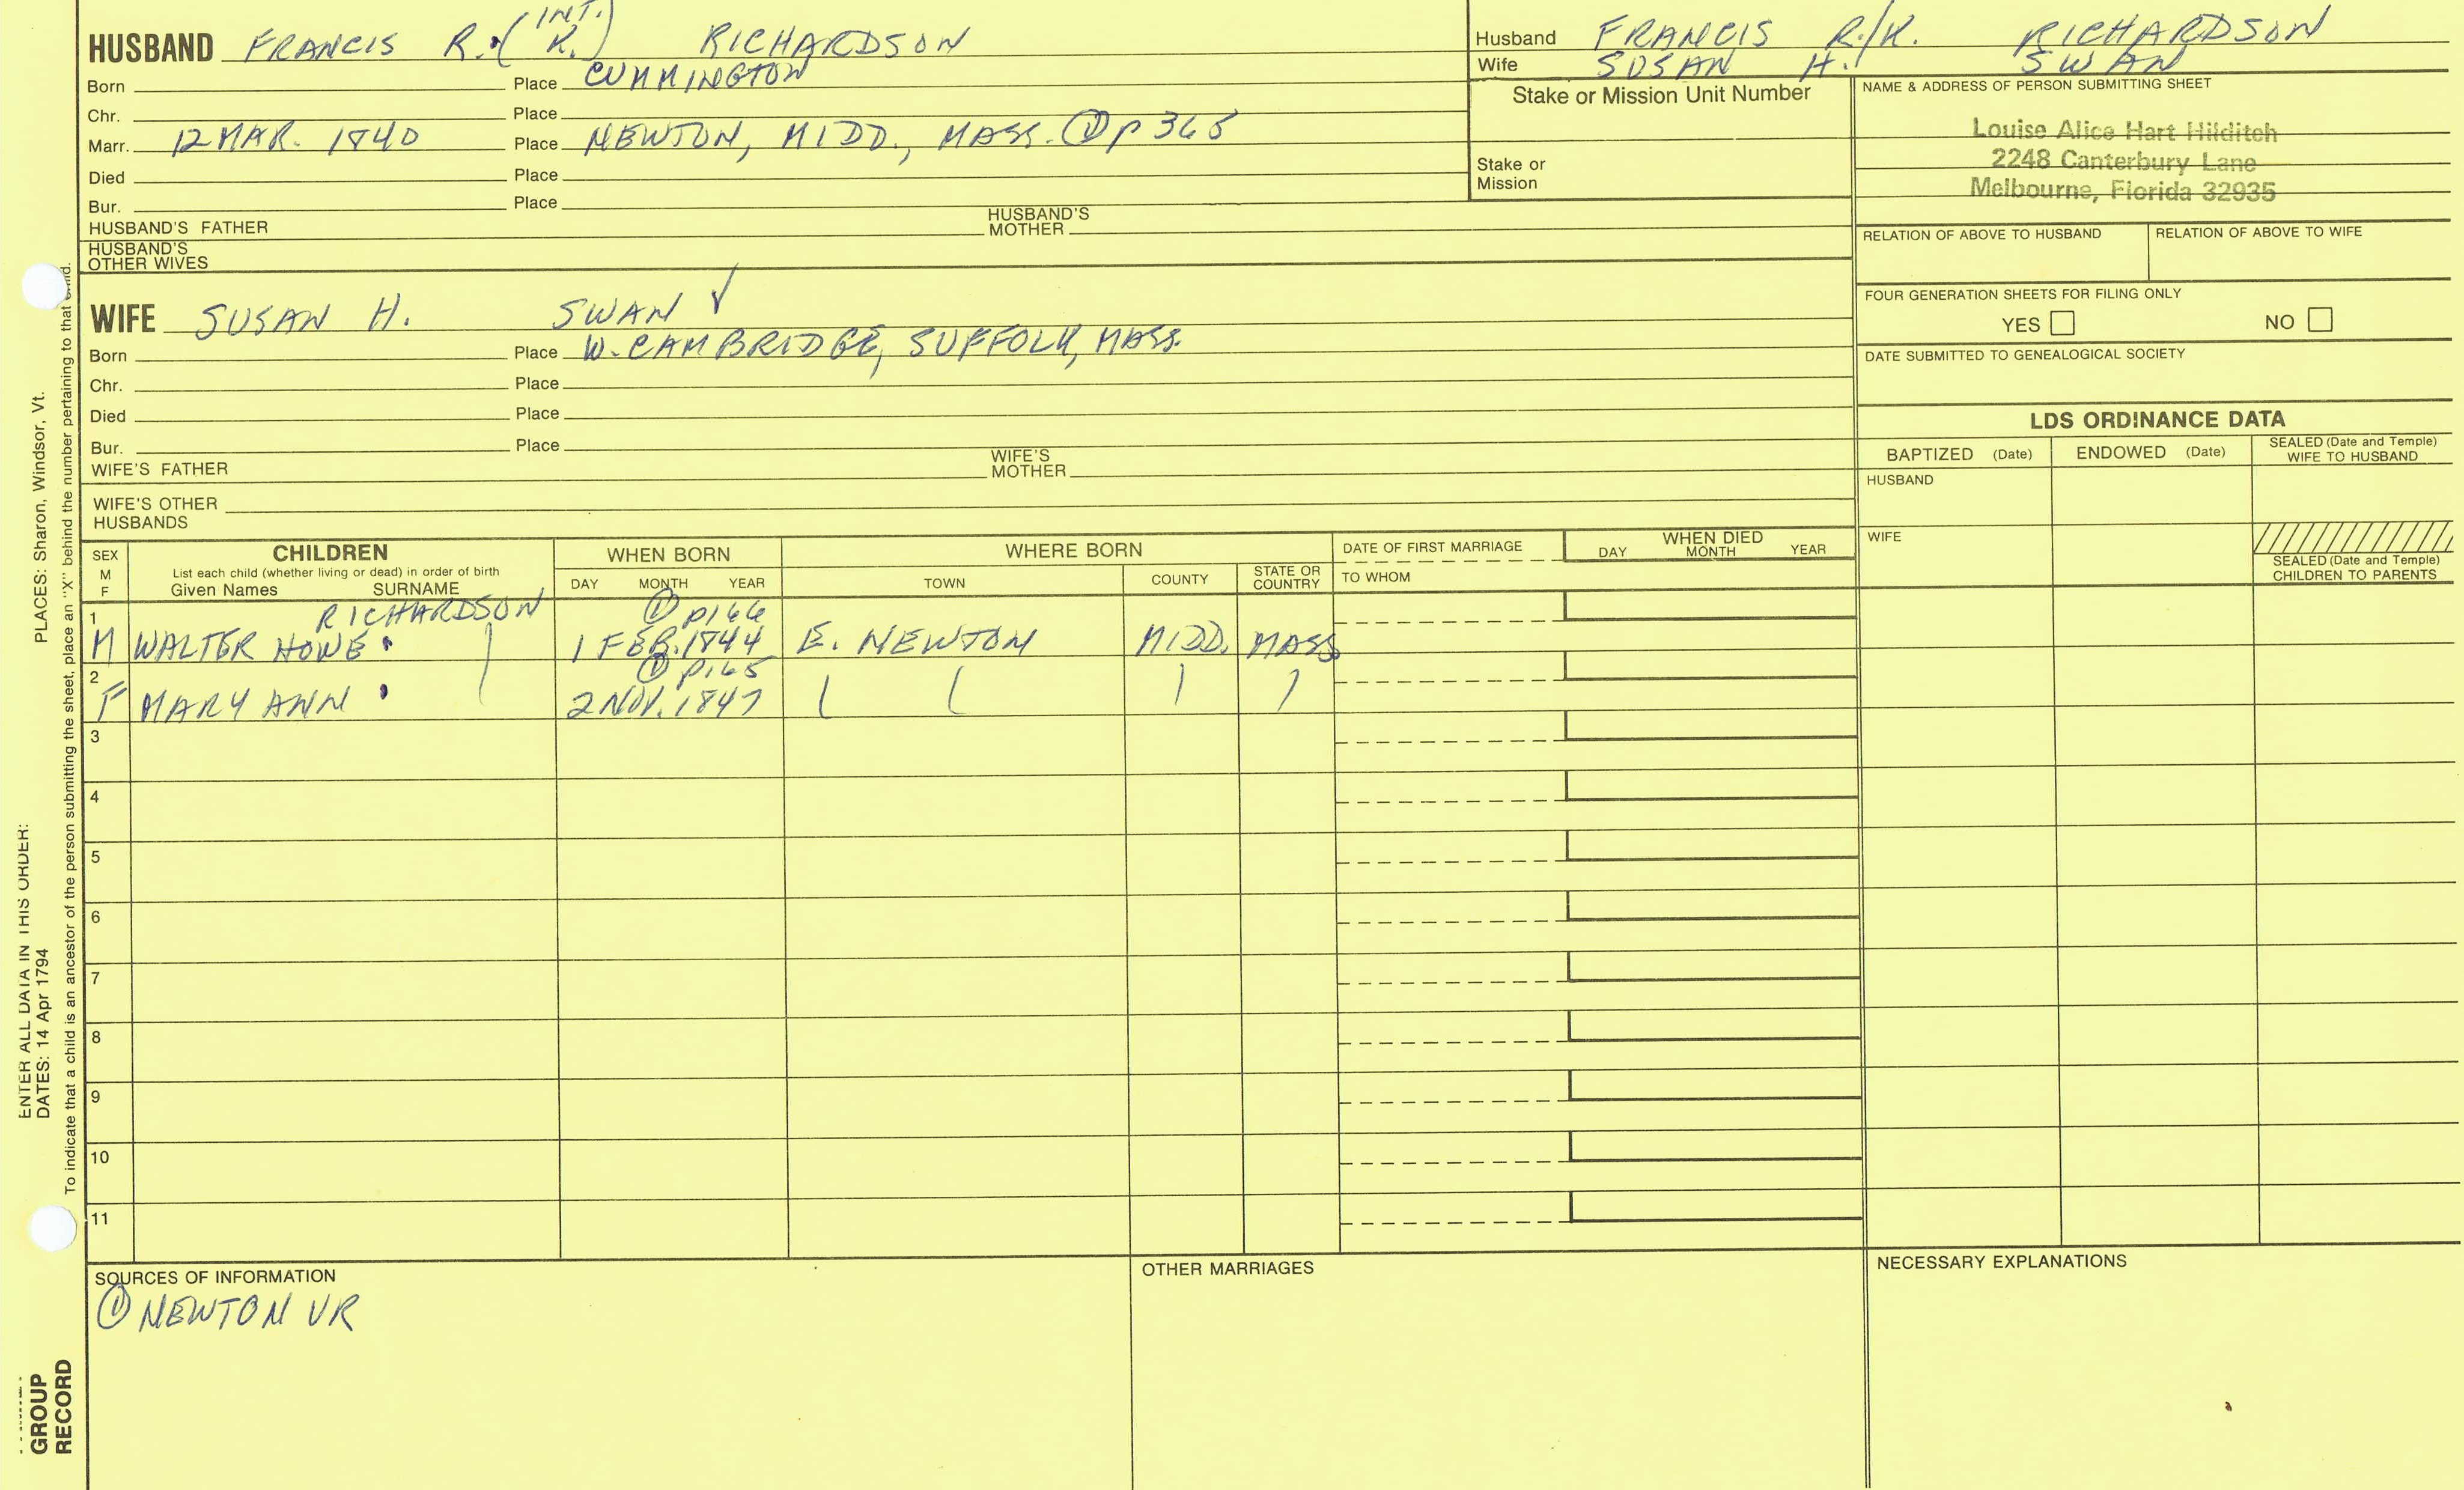 HUSBAND FRANCIS R. (INT. K.) RICHARDSON
Born Place CUMMINGTON
Chr. Place
Marr. 12 MAR. 1840 Place NEWTON, MIDD., MASS. ① p 365
Died Place
Bur. Place
HUSBAND'S FATHER HUSBAND'S MOTHER
HUSBAND'S OTHER WIVES
Husband FRANCIS R./K. RICHARDSON
Wife SUSAN H. SWAN
Stake or Mission Unit Number
Stake or Mission
NAME & ADDRESS OF PERSON SUBMITTING SHEET
Louise Alice Hart Hilditch
2248 Canterbury Lane
Melbourne, Florida 32935
RELATION OF ABOVE TO HUSBAND RELATION OF ABOVE TO WIFE
FOUR GENERATION SHEETS FOR FILING ONLY
YES NO
DATE SUBMITTED TO GENEALOGICAL SOCIETY
WIFE SUSAN H. SWAN ✓
Born Place W. CAMBRIDGE, SUFFOLK, MASS.
Chr. Place
Died Place
Bur. Place
WIFE'S FATHER WIFE'S MOTHER
WIFE'S OTHER HUSBANDS
LDS ORDINANCE DATA
BAPTIZED (Date) ENDOWED (Date) SEALED (Date and Temple) WIFE TO HUSBAND
HUSBAND
WIFE
SEALED (Date and Temple) CHILDREN TO PARENTS
SEX M F
CHILDREN
List each child (whether living or dead) in order of birth
Given Names SURNAME
WHEN BORN
DAY MONTH YEAR
WHERE BORN
TOWN COUNTY STATE OR COUNTRY
DATE OF FIRST MARRIAGE
TO WHOM
WHEN DIED
DAY MONTH YEAR
1 RICHARDSON ① p166
M WALTER HOWE 1 FEB. 1844 E. NEWTON MIDD. MASS
2 ① p165
F MARY ANN 2 NOV. 1847
3
4
5
6
7
8
9
10
11
SOURCES OF INFORMATION
① NEWTON VR
OTHER MARRIAGES
NECESSARY EXPLANATIONS
ENTER ALL DATA IN THIS ORDER:
DATES: 14 Apr 1794 PLACES: Sharon, Windsor, Vt.
To indicate that a child is an ancestor of the person submitting the sheet, place an "X" behind the number pertaining to that child.
GROUP
RECORD